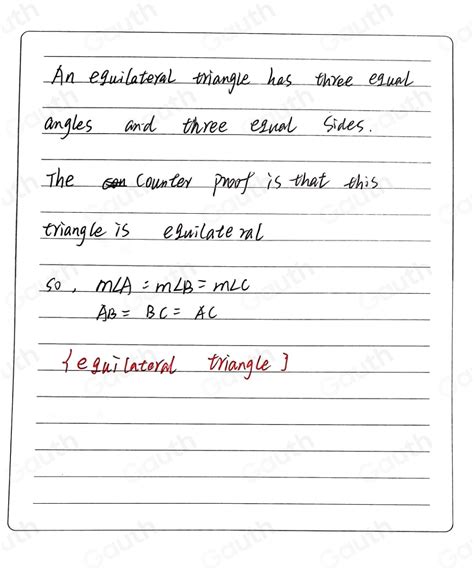 An equilateral triangle has three equal
angles and three equal sides.
The counter proof is that this
triangle is equilateral
so, m∠A = m∠B = m∠C
AB = BC = AC
{equilateral triangle}